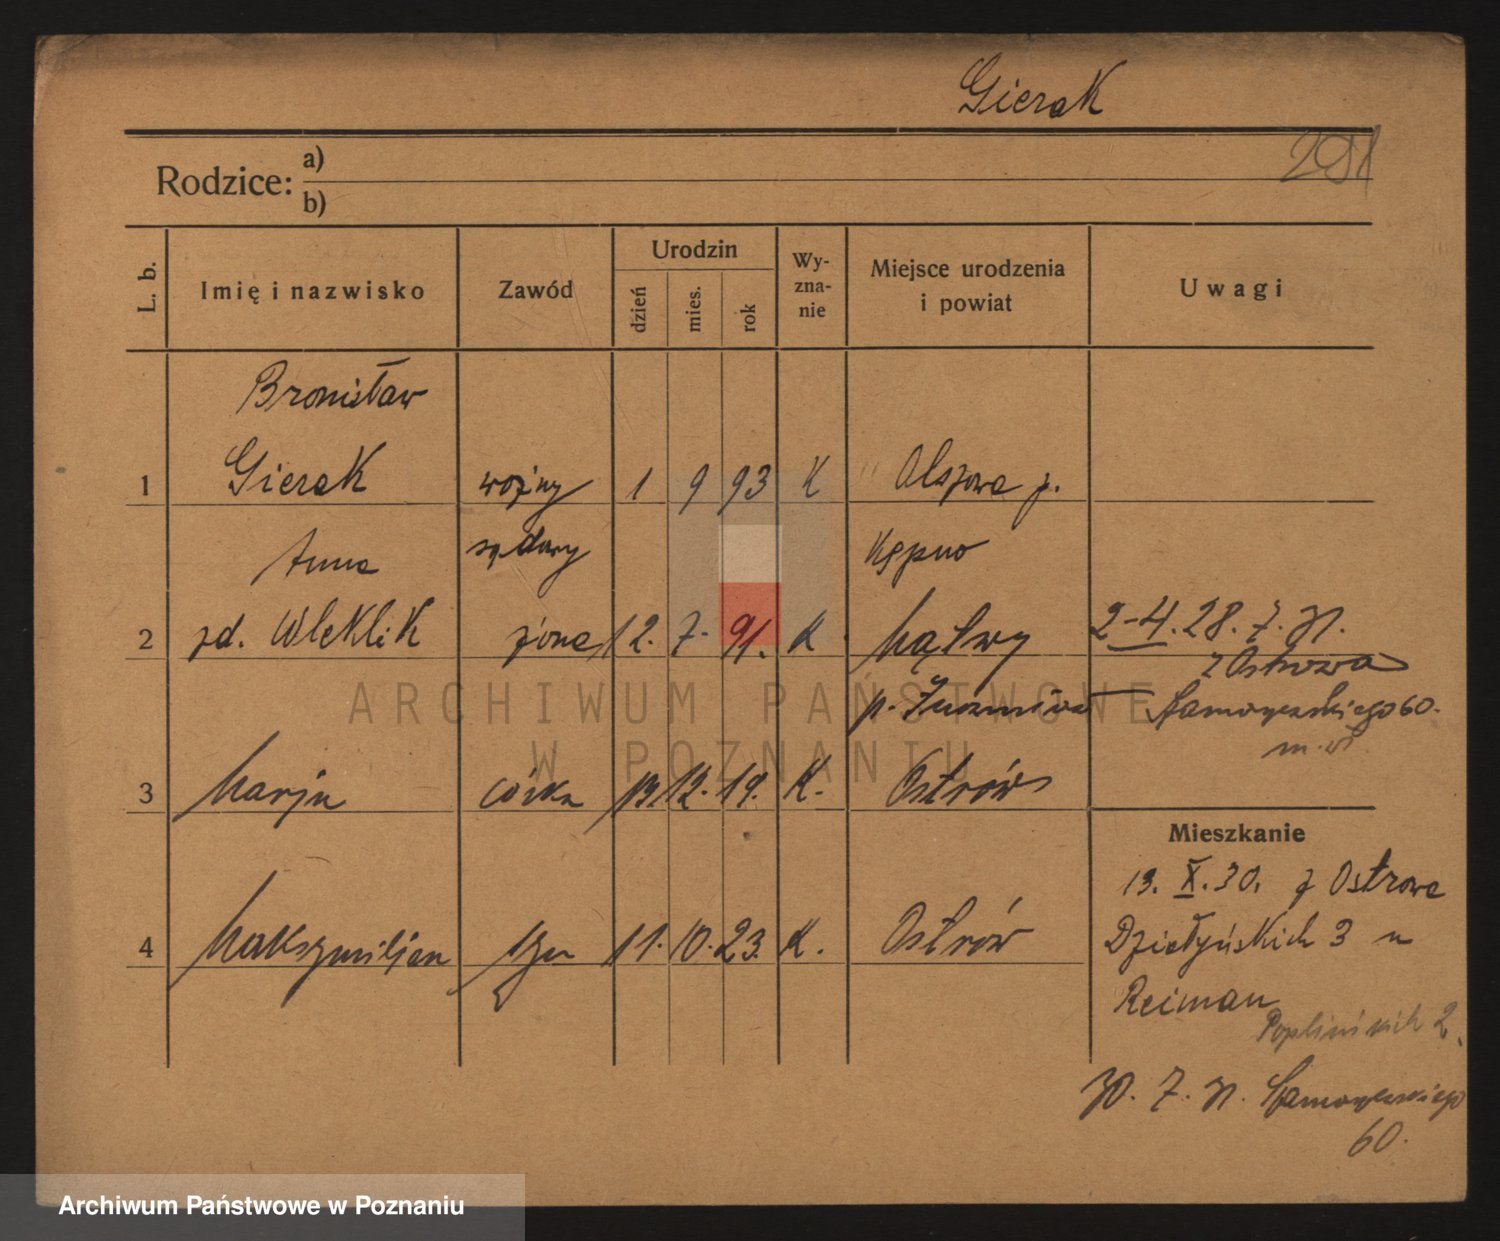 Gierak
291
Rodzice: a)
b)
L. b.
Imię i nazwisko
Zawód
Urodzin
dzień
mies.
rok
Wy-
zna-
nie
Miejsce urodzenia
i powiat
Uwagi
Bronisław
1 Gierak woźny 1 9 93 K Olszowa p.
Anna sądowy Kępno
2 zd. Wleklik żona 12. 7. 91. K Mątwy 2-4. 28. 7. 31.
z Ostrowa
p. Inowrocław Zamoyskiego 60.
3 Marja córka 13 12. 19. K. Ostrów
4 Maksymiljan syn 11. 10. 23. K. Ostrów
Mieszkanie
13. X. 30. z Ostrowa
Działyńskich 3 u
Reiman
Poplińskich 2.
30. 7. 31. Zamoyskiego
60.
ARCHIWUM PAŃSTWOWE
W POZNANIU
Archiwum Państwowe w Poznaniu